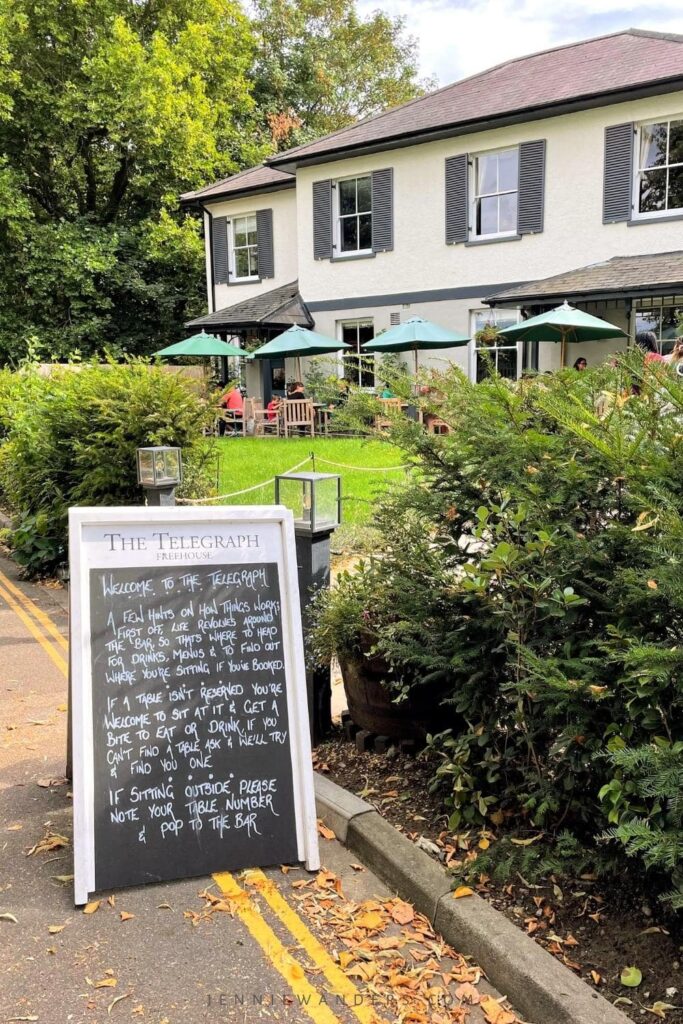 THE TELEGRAPH
FREEHOUSE
WELCOME TO THE TELEGRAPH
A FEW HINTS ON HOW THINGS WORK;
FIRST OFF, LIFE REVOLVES AROUND
THE BAR, SO THATS WHERE TO HEAD
FOR DRINKS, MENUS & TO FIND OUT
WHERE YOU'RE SITTING IF YOU'VE BOOKED.
IF A TABLE ISN'T RESERVED YOU'RE
WELCOME TO SIT AT IT & GET A
BITE TO EAT OR DRINK, IF YOU
CAN'T FIND A TABLE ASK & WE'LL TRY
& FIND YOU ONE
IF SITTING OUTSIDE PLEASE
NOTE YOUR TABLE NUMBER
& POP TO THE BAR
JENNIEWANDERS.COM